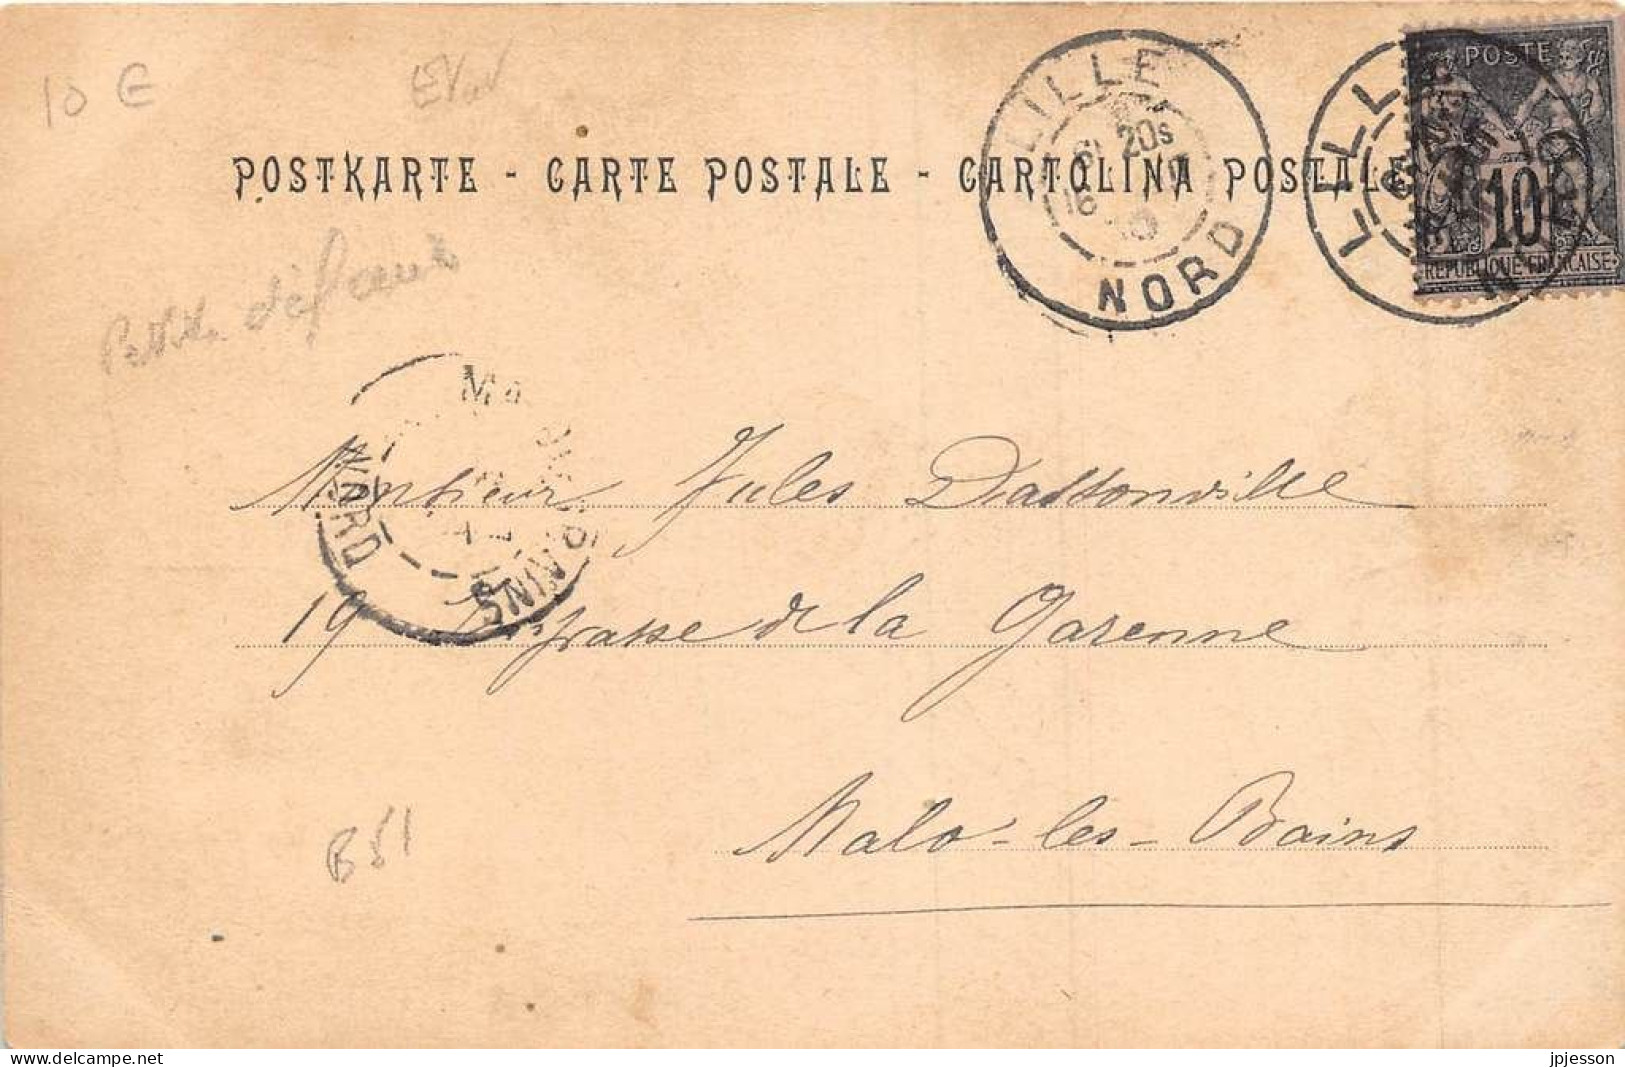 10 €
POSTKARTE - CARTE POSTALE - CARTOLINA POSTALE
LILLE
20s
16
NORD
LILLE
POSTE
10
REPUBLIQUE FRANCAISE
défaut
NORD
BAINS
Monsieur Jules Dassonville
19 Impasse de la Garenne
Malo-les-Bains
B51
www.delcampe.net
jpjesson